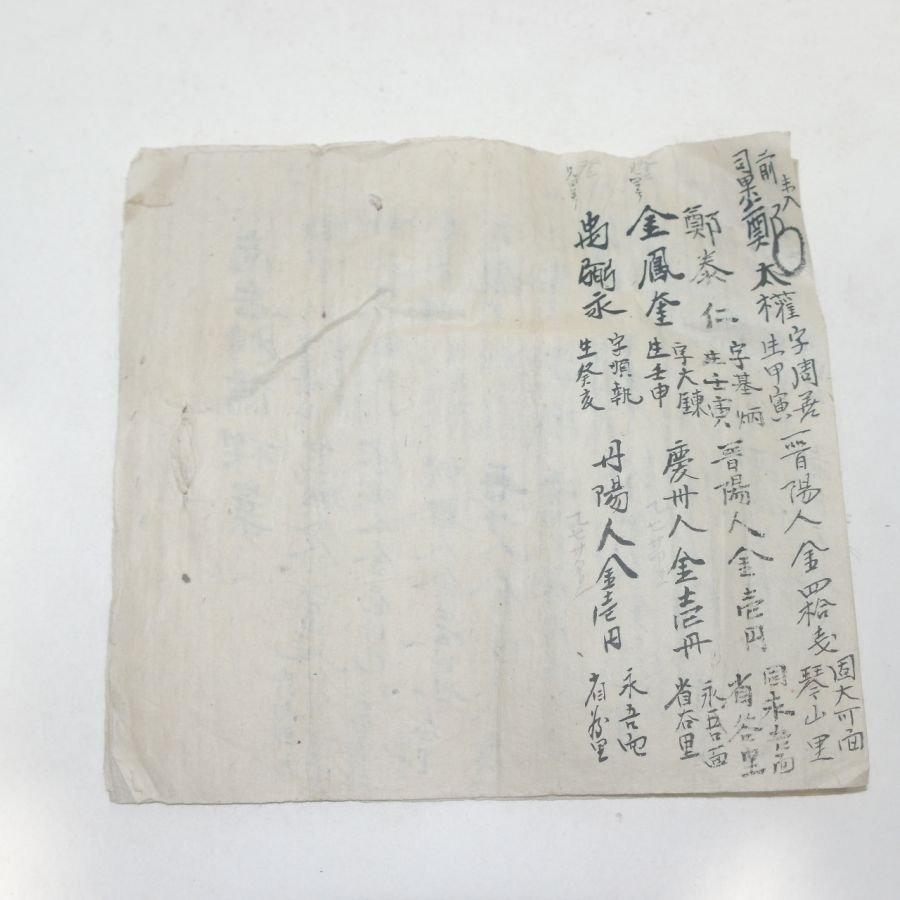 前司果 鄭太權 字周善 生甲寅 晋陽人 金四拾戔 固大可面 琴山里
鄭泰仁 字基炳 生壬寅 晋陽人 金壱円 同永吾面 省谷里
金鳳奎 字大鍊 生壬申 慶州人 金壱円 永吾面 省谷里
禹弼永 字順執 生癸亥 丹陽人 金壱円 永吾面 省谷里